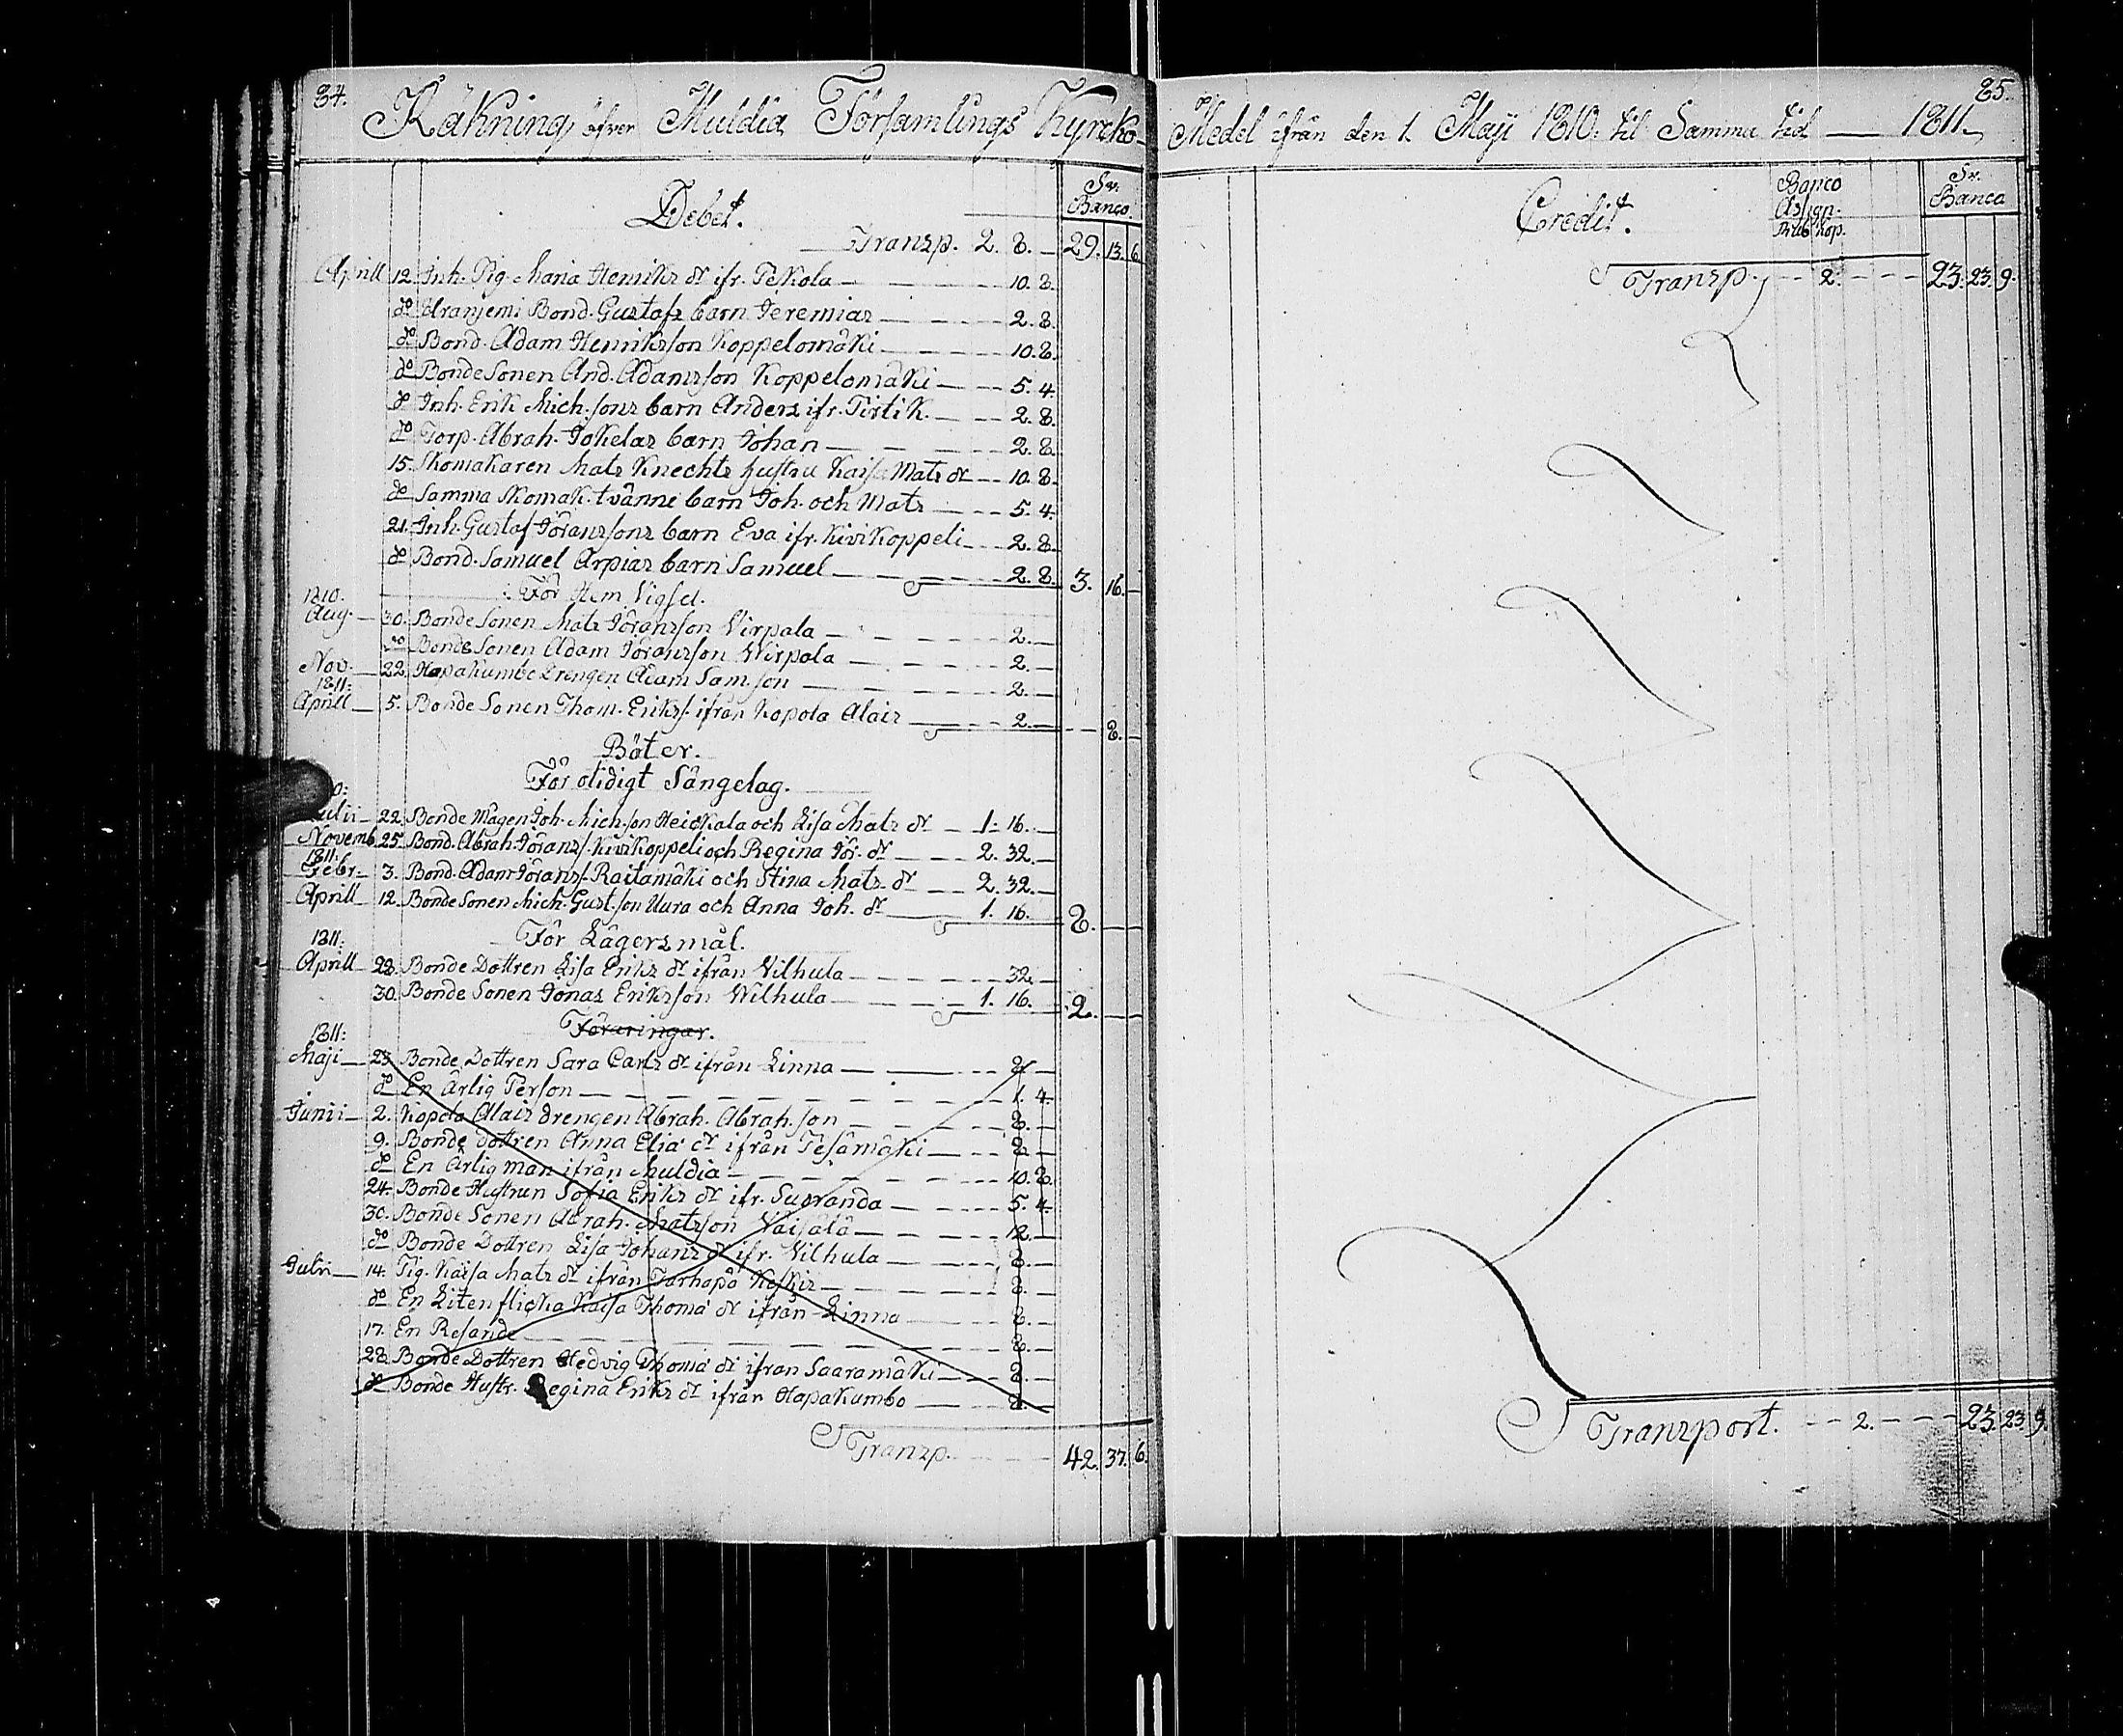 84.
Räkning öfver Muldia Församlings Kyrcko-
Debet.
Sv. Banco
Transp. 2. 8. — 29. 13. 6.
Aprill 12. Inh. Pig. Maria Henriks dr ifr. Pekola — 10. 8.
do Uranjemi Bond. Gustafs barn Jeremias — 2. 8.
do Bond. Adam Henriksson Koppelomäki — 10. 8.
do Bonde Sonen And. Adamsson Koppelomäki — 5. 4.
do Inh. Erik Mich.sons barn Anders ifr. Pirtik. — 2. 8.
do Torp. Abrah. Jokelas barn Johan — 2. 8.
15. Skomakaren Mats Knechts hustru Kaisa Mats dr — 10. 8.
do Samma Skomak. tvänne barn Joh. och Mats — 5. 4.
21. Inh. Gustaf Göranssons barn Eva ifr. Kivikoppeli — 2. 8.
do Bond. Samuel Arpias barn Samuel — 2. 8. 3. 16. —
För Hem Vigsel.
1810.
Aug. — 30. Bonde Sonen Mats Göransson Virpala — 2. —
do Bonde Sonen Adam Göransson Wirpola — 2. —
Nov. — 22. Hapakumbo Drengen Adam Samson — 2. —
1811:
Aprill — 5. Bonde Sonen Thom. Eriks. ifrån Kopola Alais — 2. — 8. —
Böter.
För otidigt Sängelag.
0:
Julii — 22. Bonde Mågen Joh. Mich.son Heickala och Lisa Mats dr — 1. 16. —
Novemb. 25. Bond. Abrah. Görans. Kivikoppeli och Regina Gör. dr — 2. 32. —
1811:
Febr. — 3. Bond. Adam Görans. Raitamäki och Stina Mats dr — 2. 32. —
Aprill — 12. Bonde Sonen Mich. Gust.son Uura och Anna Joh. dr — 1. 16. 8. —
För Lägersmål.
1811:
Aprill — 28. Bonde Dottren Lisa Eriks dr ifrån Vilhula — 32. —
30. Bonde Sonen Jonas Eriksson Wilhula — 1. 16. 2. —
Föräringar.
1811:
Maji — 23. Bonde Dottren Sara Carls dr ifrån Linna — 8. —
do En Ärlig Person — 1. 4.
Junii — 2. Kopola Alais drengen Abrah. Abrah.son — 8. —
9. Bonde dottren Anna Eliæ dr ifrån Pesämäki — 8. —
do En Ärlig man ifrån Muldia — 10. 8.
24. Bonde Hustrun Sofia Eriks dr ifr. Suoranda — 5. 4.
30. Bonde Sonen Abrah. Matsson Vaisälä — 12. —
do Bonde Dottren Lisa Johans dr ifr. Vilhula — 8. —
Julii — 14. Pig. Kaisa Mats dr ifrån Tarhapä Keskis — 8. —
do En Liten flicka Kaisa Thomæ dr ifrån Linna — 8. —
17. En Resande — 8. —
28. Bonde Dottren Hedvig Thomæ dr ifrån Saaramäki — 8. —
do Bonde Hustr. Regina Eriks dr ifrån Hapakumbo — 8. —
Transp. — 42. 37. 6.
85.
Medel ifrån den 1. Maji 1810. til Samma tid — 1811.
Credit.
Banco Assign. Rub. Kop.
Sv. Banco
Transp. — 2. — 23. 23. 9.
Transport. — 2. — 23. 23. 9.